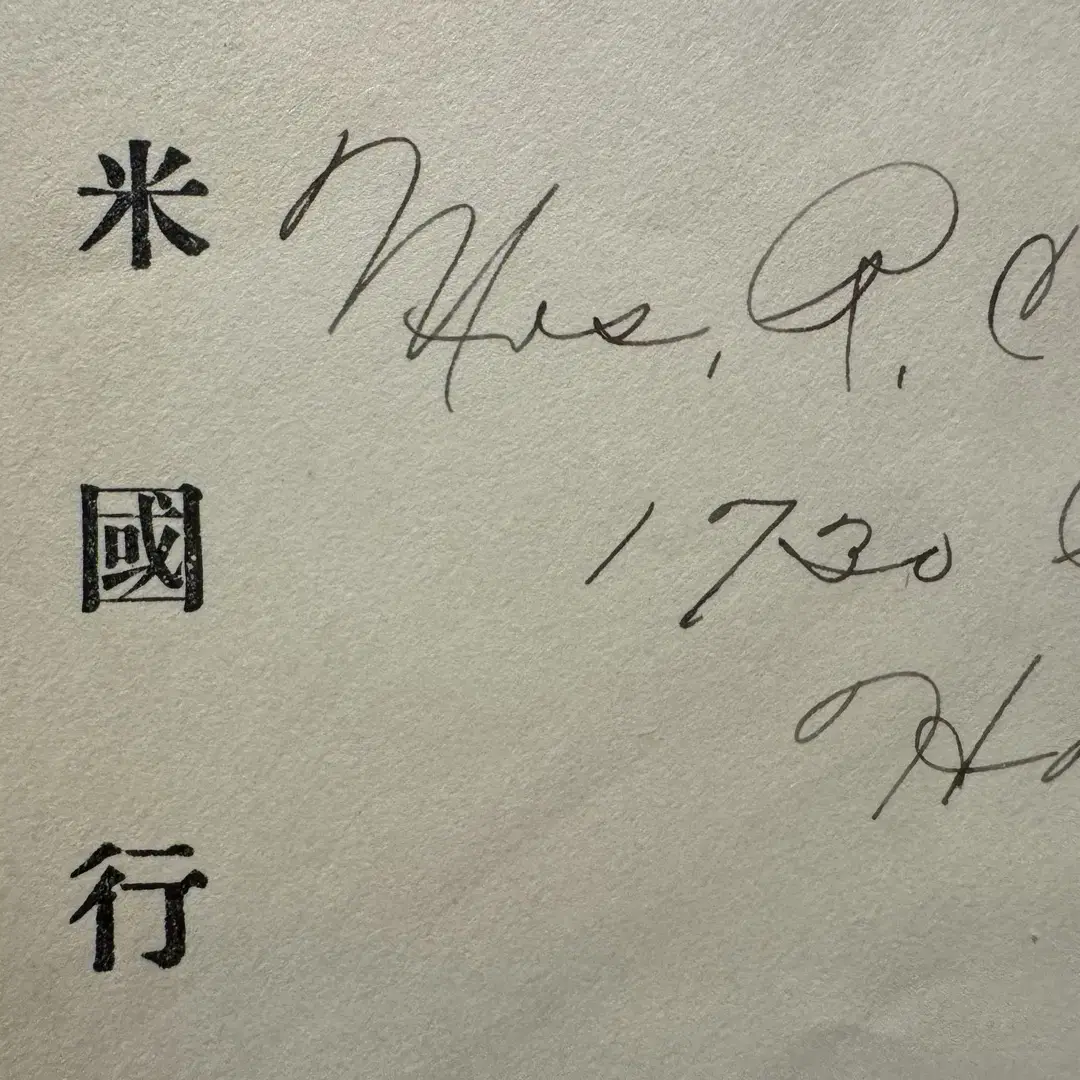 米國行
Mrs. A. C
1730